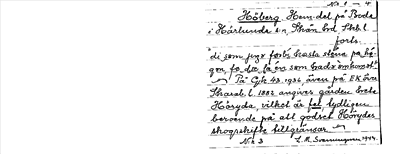 No 1 - 4
Höberg Hem.del på Boda
i Härlunda sn, Skån hd Skbl
forts.
di som jagr forts. kasta stena på hö-
gen, fo de
På Gsk 43, 1936, även på EK över
Skarab. l. 1883 angives gården heta
Höryda, vilket är fel, tydligen
beroende på att godset Höryder
skogsskifte tillgränsar
No 3 L. M. Svenungsson 1944.